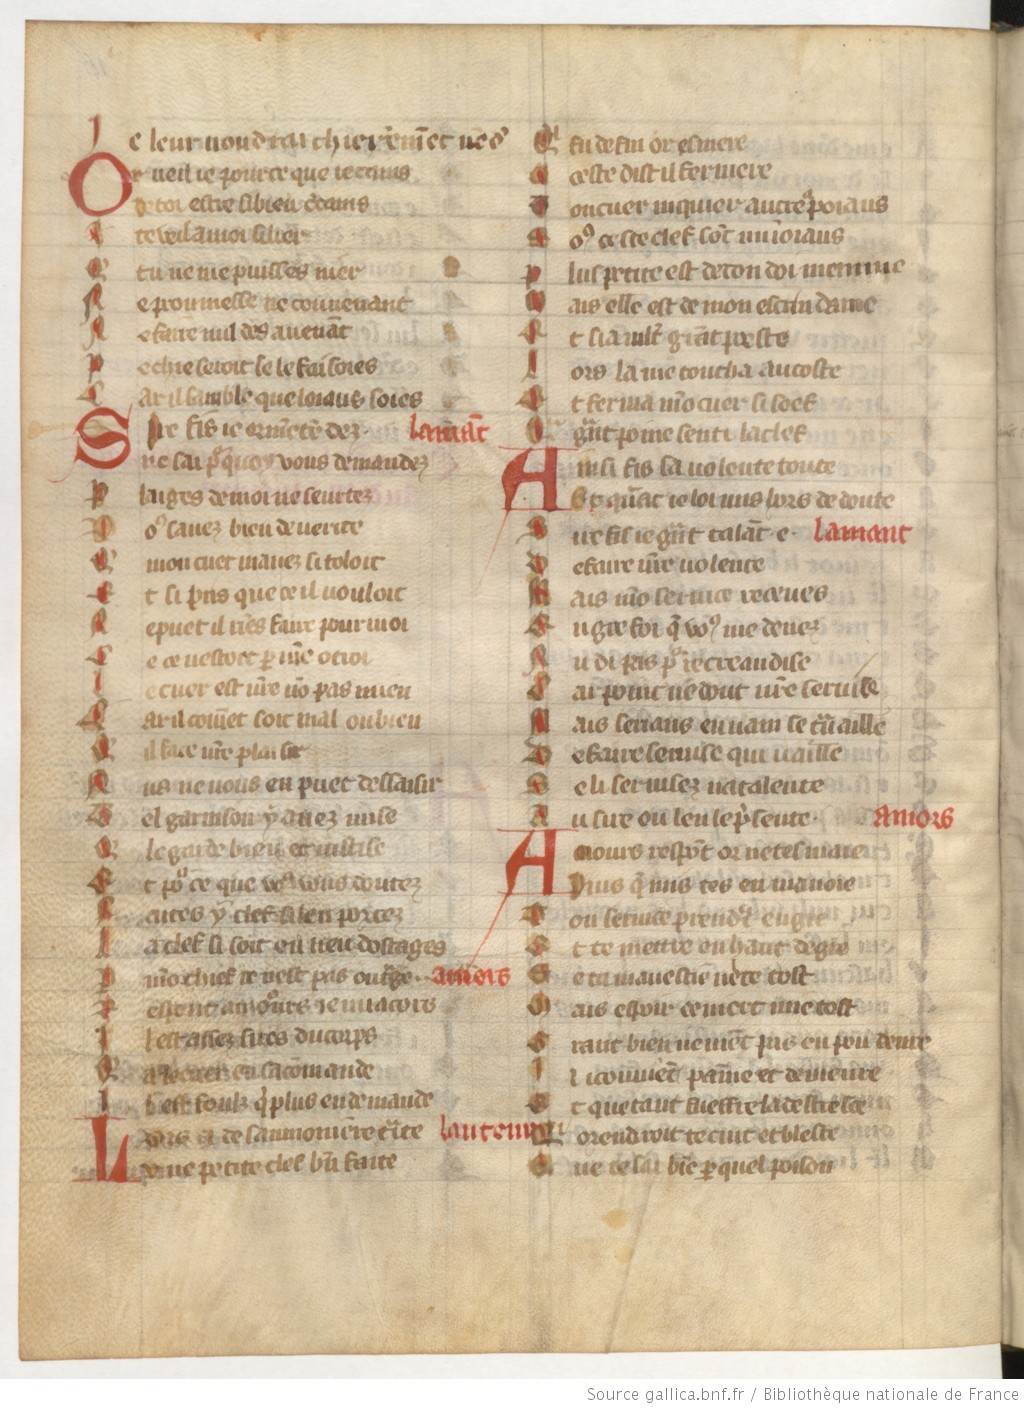 Je leur voudrai chieremēt vēdꝰ
Or vueil ie pource que ie crains
De toi estre si bien c̄tains
Te veil a moi si lier
Q tu ne me puisses nier
Ne promesse ne couuenant
Ne faire nul des auenāt
Pechie seroit se le faisoies
Car il samble que loiaus soies
Sire fis ie or mētēdez lamāt
Ne sai pͦquoy vous demandez
Plaiges de moi ne seurtez
Vꝰ sauez bien de verite
Q mon cuer mauez si toloit
Et si pris que ce il vouloit
Ne puet il riēs faire pour moi
Se ce nestoit p̱ vr̄e otroi
Le cuer est vr̄e nō pas mien
Car il couiēt soit mal ou bien
Q il face vr̄e plaisir
Nus ne vous en puet dessaisir
Tel garnison y auez mise
Q le garde bien et iustise
Et pͦ ce que veꝰ vous doutez
Faites y clef si len portez
La clef si soit en lieu dostages
 amers
Respont amours ie mi acors
Il est assez sires du corps
Q a le cuer en sa comande
 q̇ plus en demande
Lors a de saumoniere traite lauteur
Vne petite clef bn̄ faite
Q fu de fin or esmere
A ceste dist il fermere
Ton cuer n quier autre apoiaus
Sꝰ ceste clef sōt mi ioiaus
Plus petite est de ton doi menme
Mais elle est de mon escrin dame
Et si a mlt̄ grāt poeste
Lors la me toucha au coste
Et ferma mō cuer si soef
Q grāt poine senti la clef
Ainsi fis sa volente toute
Et quāt ie loi mis hors de doute
Sire fis ie grāt talāt e lamant
De faire vr̄e volente
Mais mō seruice receues
En gre foi q̄ voꝰ me deuez
Nu di pas pͦ recreandise
Car point ne dout vr̄e seruise
Mais serians en vain se trauaille
De faire seruise qui vaille
Se li seruisez natalente
A u sire ou len le presente amors
Amours respōt or ne tesmaie
Puis q̄ mis tes en manoie
Ton seruice prendre en gre
Et te mettre en haut degre
Se ta mauestie ne te tost
Mais espoir ce niert mie tost
Grant bien ne viēt pas en pou deure
Il i couuiēt paine et demeure
Et que tant sueffre la destresce
Q orendroit te cuit et blesce
Que ie sai biē p̱ quel poison